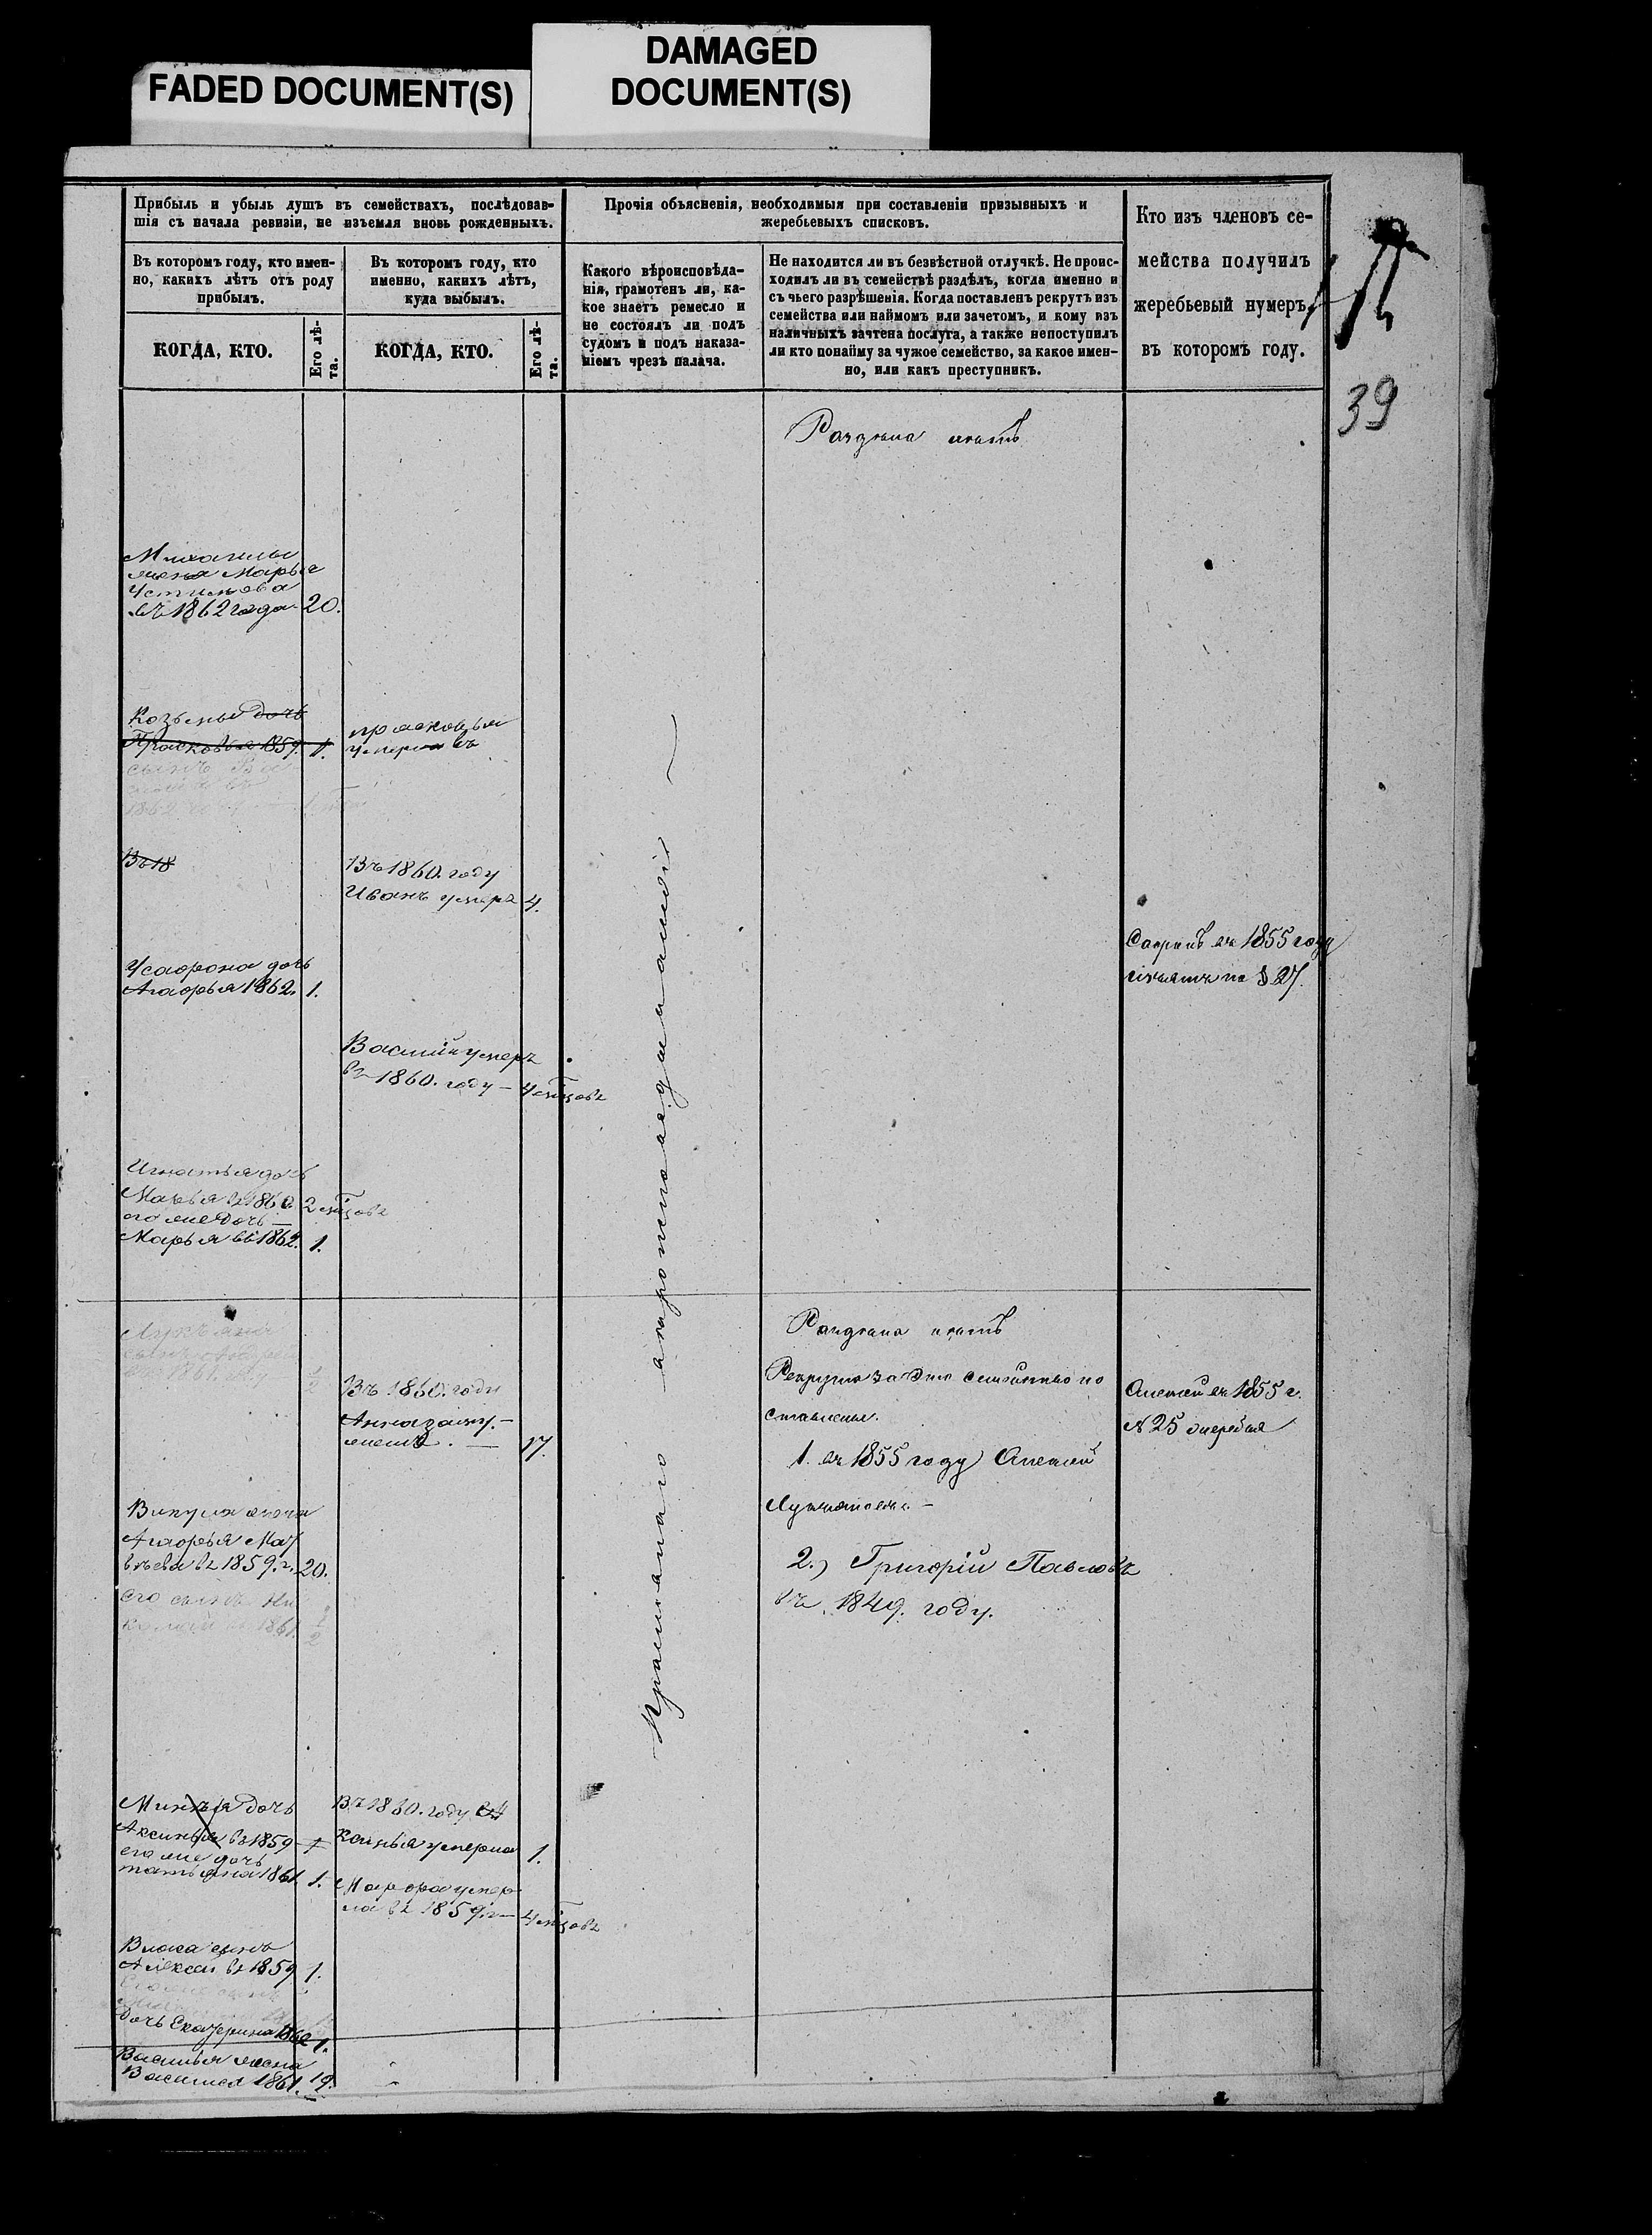 FADED DOCUMENT(S)
DAMAGED
DOCUMENT(S)
Прибыль и убыль душъ въ семействахъ, послѣдовав-
шія съ начала ревизіи, не изъемля вновь рожденныхъ.
Въ которомъ году, кто имен-
но, какихъ лѣтъ отъ роду
прибылъ.
КОГДА, КТО.
Его лѣ-
та.
Въ которомъ году, кто
именно, какихъ лѣтъ,
куда выбылъ.
КОГДА, КТО.
Его лѣ-
та.
Прочія объясненія, необходимыя при составленіи призывныхъ и
жеребьевыхъ списковъ.
Какого вѣроисповѣда-
нія, грамотенъ ли, ка-
кое знаетъ ремесло и
не состоялъ ли подъ
судомъ и подъ наказа-
ніемъ чрезъ палача.
Не находится ли въ безвѣстной отлучкѣ. Не проис-
ходилъ ли въ семействѣ раздѣлъ, когда именно и
съ чьего разрѣшенія. Когда поставленъ рекрутъ изъ
семейства или наймомъ или зачетомъ, и кому изъ
наличныхъ зачтена послуга, а также непоступилъ
ли кто понайму за чужое семейство, за какое имен-
но, или какъ преступникъ.
Кто изъ членовъ се-
мейства получилъ
жеребьевый нумеръ,
въ которомъ году.
39
Раздѣла нѣтъ
Михаилы
жена Марья
Устинова
въ 1862 года 20.
Козьмы дочь
Прасковья 1859. 1.
сынъ
1862
прасковья
умерла въ
Въ 18
Въ 1860. году
Иванъ умеръ 4.
дочь
Агафья 1862. 1.
въ 1855 году
по § 27.
Василій умеръ
въ 1860. году – 4 мѣсцовъ
Игнатья дочь
Марья въ 1860 2 мѣсцовъ
его же дочь –
Марья въ 1862. 1.
сынъ
1861 ½
Въ 1860. году
Анна заму-
жемъ. — 17.
Раздѣла нѣтъ
Рекрутъ за это семейство по
ставлены.
1. въ 1855 году Алексей
Лукьяновъ. –
2.) Григорій Павловъ
въ 1849. году.
Алексей въ 1855 г.
№ 25
Викула жена
Агафья Мат
вѣева въ 1859. г. 20.
его сынъ Ни
колай въ 1861. ½
православнаго неграмотны
дочь
Аксинья въ 1859 1
его же дочь
татьяна 1861. 1.
Въ 1860. году Ак
синья умерла 1.
Марфа умер
ла въ 1859. г. – 4 мѣсцовъ
Власа сынъ
Алексей въ 1859 1.
Его же сынъ
дочь Екатерина 1862 1.
Василья жена
Василиса 1861. 19.